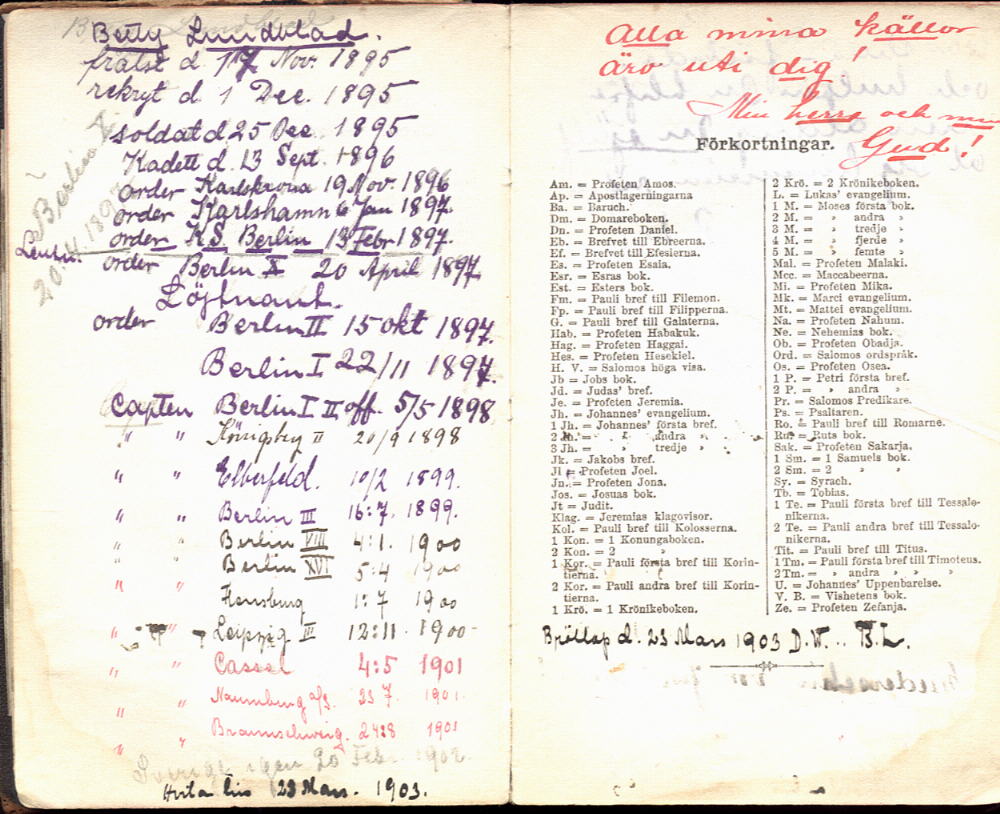 Betty Lundblad.
frälst d. 17 Nov. 1895
rekryt d. 1 Dec. 1895
soldat d. 25 Dec. 1895
Kadett d. 13 Sept. 1896
order Karlskrona 19 Nov. 1896
order Karlshamn 6 Jan 1897.
order K.S. Berlin 13 Febr 1897.
order Berlin X 20 April 1897
Löjtnant.
order Berlin II 15 okt 1897.
Berlin I 22/11 1897.
Capten Berlin I II off. 5/5 1898
" " Königsbg II 20/9 1898
" " Elberfeld. 10/2 1899.
" " Berlin III 16:7. 1899.
" " Berlin VIII 4:1. 1900
" " Berlin XVI 5:4 1900
" " Flensburg 1:7 1900
" " Leipzig III 12:11. 1900-
" " Cassel 4:5 1901
" " Naumburg a/S. 23 7. 1901.
" " Braunschweig. 24:8 1901
" " Sverige igen 20 Febr. 1902.
23 Mars. 1903.
Alla mina källor
äro uti dig!
Min herre och min
Gud!
Förkortningar.
Am. = Profeten Amos.
Ap. = Apostlagerningarna
Ba. = Baruch.
Dm. = Domareboken.
Dn. = Profeten Daniel.
Eb. = Brefvet till Ebreerna.
Ef. = Brefvet till Efesierna.
Es. = Profeten Esaia.
Esr. = Esras bok.
Est. = Esters bok.
Fm. = Pauli bref till Filemon.
Fp. = Pauli bref till Filipperna.
G. = Pauli bref till Galaterna.
Hab. = Profeten Habakuk.
Hag. = Profeten Haggai.
Hes. = Profeten Hesekiel.
H. V. = Salomos höga visa.
Jb = Jobs bok.
Jd. = Judas' bref.
Je. = Profeten Jeremia.
Jh. = Johannes' evangelium.
1 Jh. = Johannes' första bref.
2 Jh. = » andra »
3 Jh. = » tredje »
Jk. = Jakobs bref.
Jl = Profeten Joel.
Jn. = Profeten Jona.
Jos. = Josuas bok.
Jt = Judit.
Klag. = Jeremias klagovisor.
Kol. = Pauli bref till Kolosserna.
1 Kon. = 1 Konungaboken.
2 Kon. = 2 »
1 Kor. = Pauli första bref till Korin-
tierna.
2 Kor. = Pauli andra bref till Korin-
tierna.
1 Krö. = 1 Krönikeboken.
2 Krö. = 2 Krönikeboken.
L. = Lukas' evangelium.
1 M. = Moses första bok.
2 M. = » andra »
3 M. = » tredje »
4 M. = » fjerde »
5 M. = » femte »
Mal. = Profeten Malaki.
Mcc. = Maccabeerna.
Mi. = Profeten Mika.
Mk. = Marci evangelium.
Mt. = Mattei evangelium.
Na. = Profeten Nahum.
Ne. = Nehemias bok.
Ob. = Profeten Obadja.
Ord. = Salomos ordspråk.
Os. = Profeten Osea.
1 P. = Petri första bref.
2 P. = » andra »
Pr. = Salomos Predikare.
Ps. = Psaltaren.
Ro. = Pauli bref till Romarne.
Ru. = Ruts bok.
Sak. = Profeten Sakarja.
1 Sm. = 1 Samuels bok.
2 Sm. = 2 » »
Sy. = Syrach.
Tb. = Tobias.
1 Te. = Pauli första bref till Tessalo-
nikerna.
2 Te. = Pauli andra bref till Tessalo-
nikerna.
Tit. = Pauli bref till Titus.
1 Tm. = Pauli första bref till Timoteus.
2 Tm. = » andra » »
U. = Johannes' Uppenbarelse.
V. B. = Vishetens bok.
Ze. = Profeten Zefanja.
Bröllop d. 23 Mars 1903 D.W... B.L.